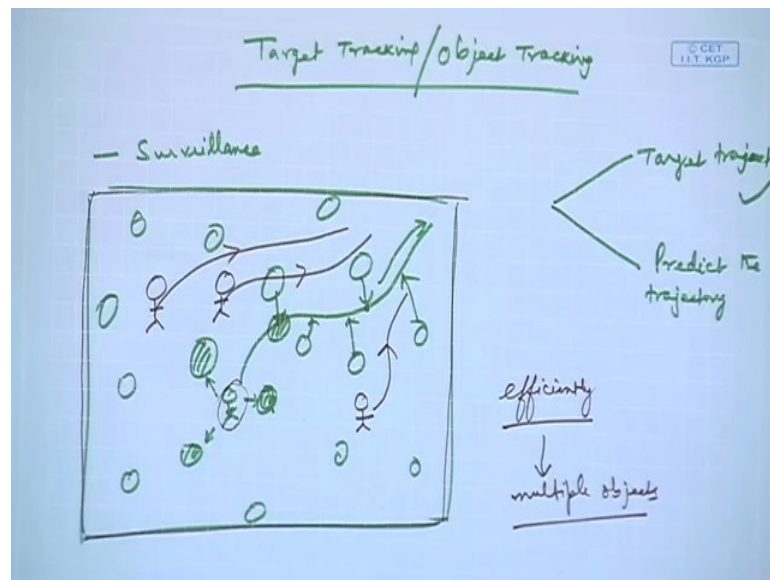 Target Tracking/Object Tracking
© CET
I.I.T. KGP
— Survillance
Target traject
Predict the
trajectory
efficiently
multiple objects